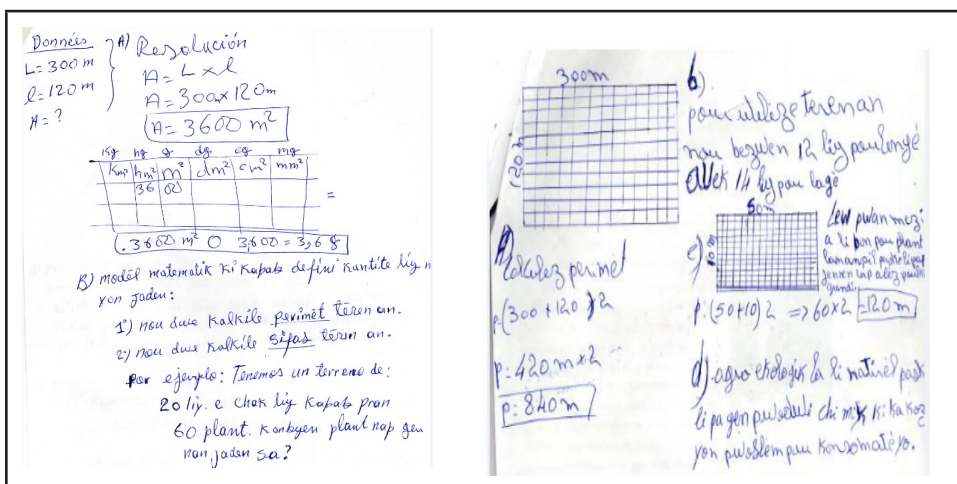 Données
L= 300 m
l= 120 m
A= ?
A) Resolución
A= L x l
A= 300m x 120m
A= 3600 m²
Kg hg g dg cg mg
Km² hm² m² dm² cm² mm²
36 00
=
3600 m² O 3,600 = 3,6
B) modèl matematik ki kapab defini kantite liy n
yon jaden:
1°) nou dwe kalkile perimèt tèren an.
2°) nou dwe kalkile sifas tèren an.
Por ejemplo: Tenemos un terreno de:
20 liy. e chak liy kapab pran
60 plant. Konbyen plant nap gen
nan jaden sa?
300m
120m
Calculez perimèt
P=(300+120)2
P= 420,m x 2
P= 840m
b)
pour utilize teren an
nou bezwen 12 liy pou longè
avek 14 liy pou lagè
50m
c)
Lew pwan mezi
a li bon pou plant
P: (50+10) 2 => 60x2 =120 m
d) agro ekologik la li natirèl pask
li pa gen pwodui chimik ki ka koz
yon pwoblèm pou konsomatè yo.